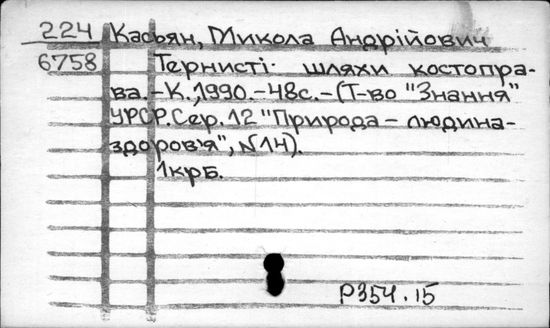 224 Касьян, Микола Андрійович
6758 Тернисті шляхи костопра-
ва.-К.,1990.-48с.-(Т-во "Знання"
УРСР. Сер. 12 "Природа - людина-
здоров'я", №14).
1крб.
Р354.15